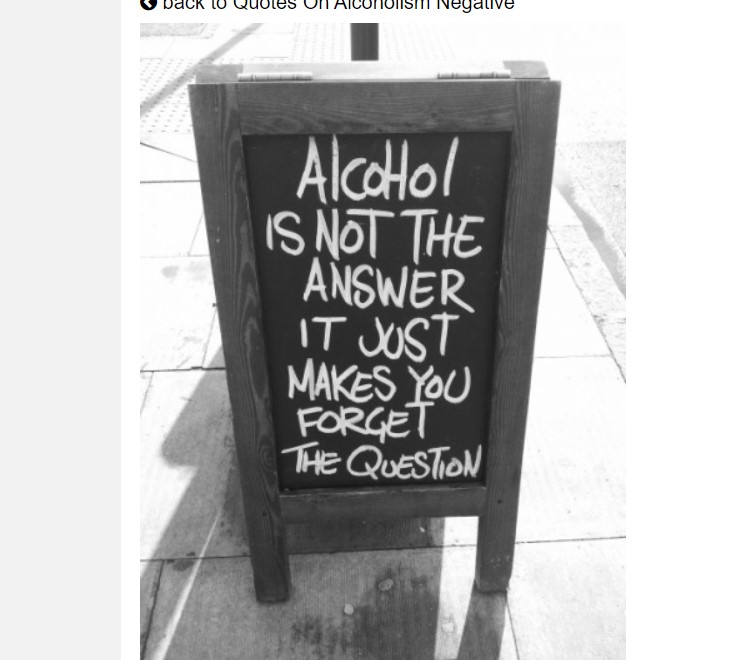 back to Quotes On Alcoholism Negative
Alcohol
IS NOT THE
ANSWER
IT JUST
MAKES YOU
FORGET
THE QUESTION